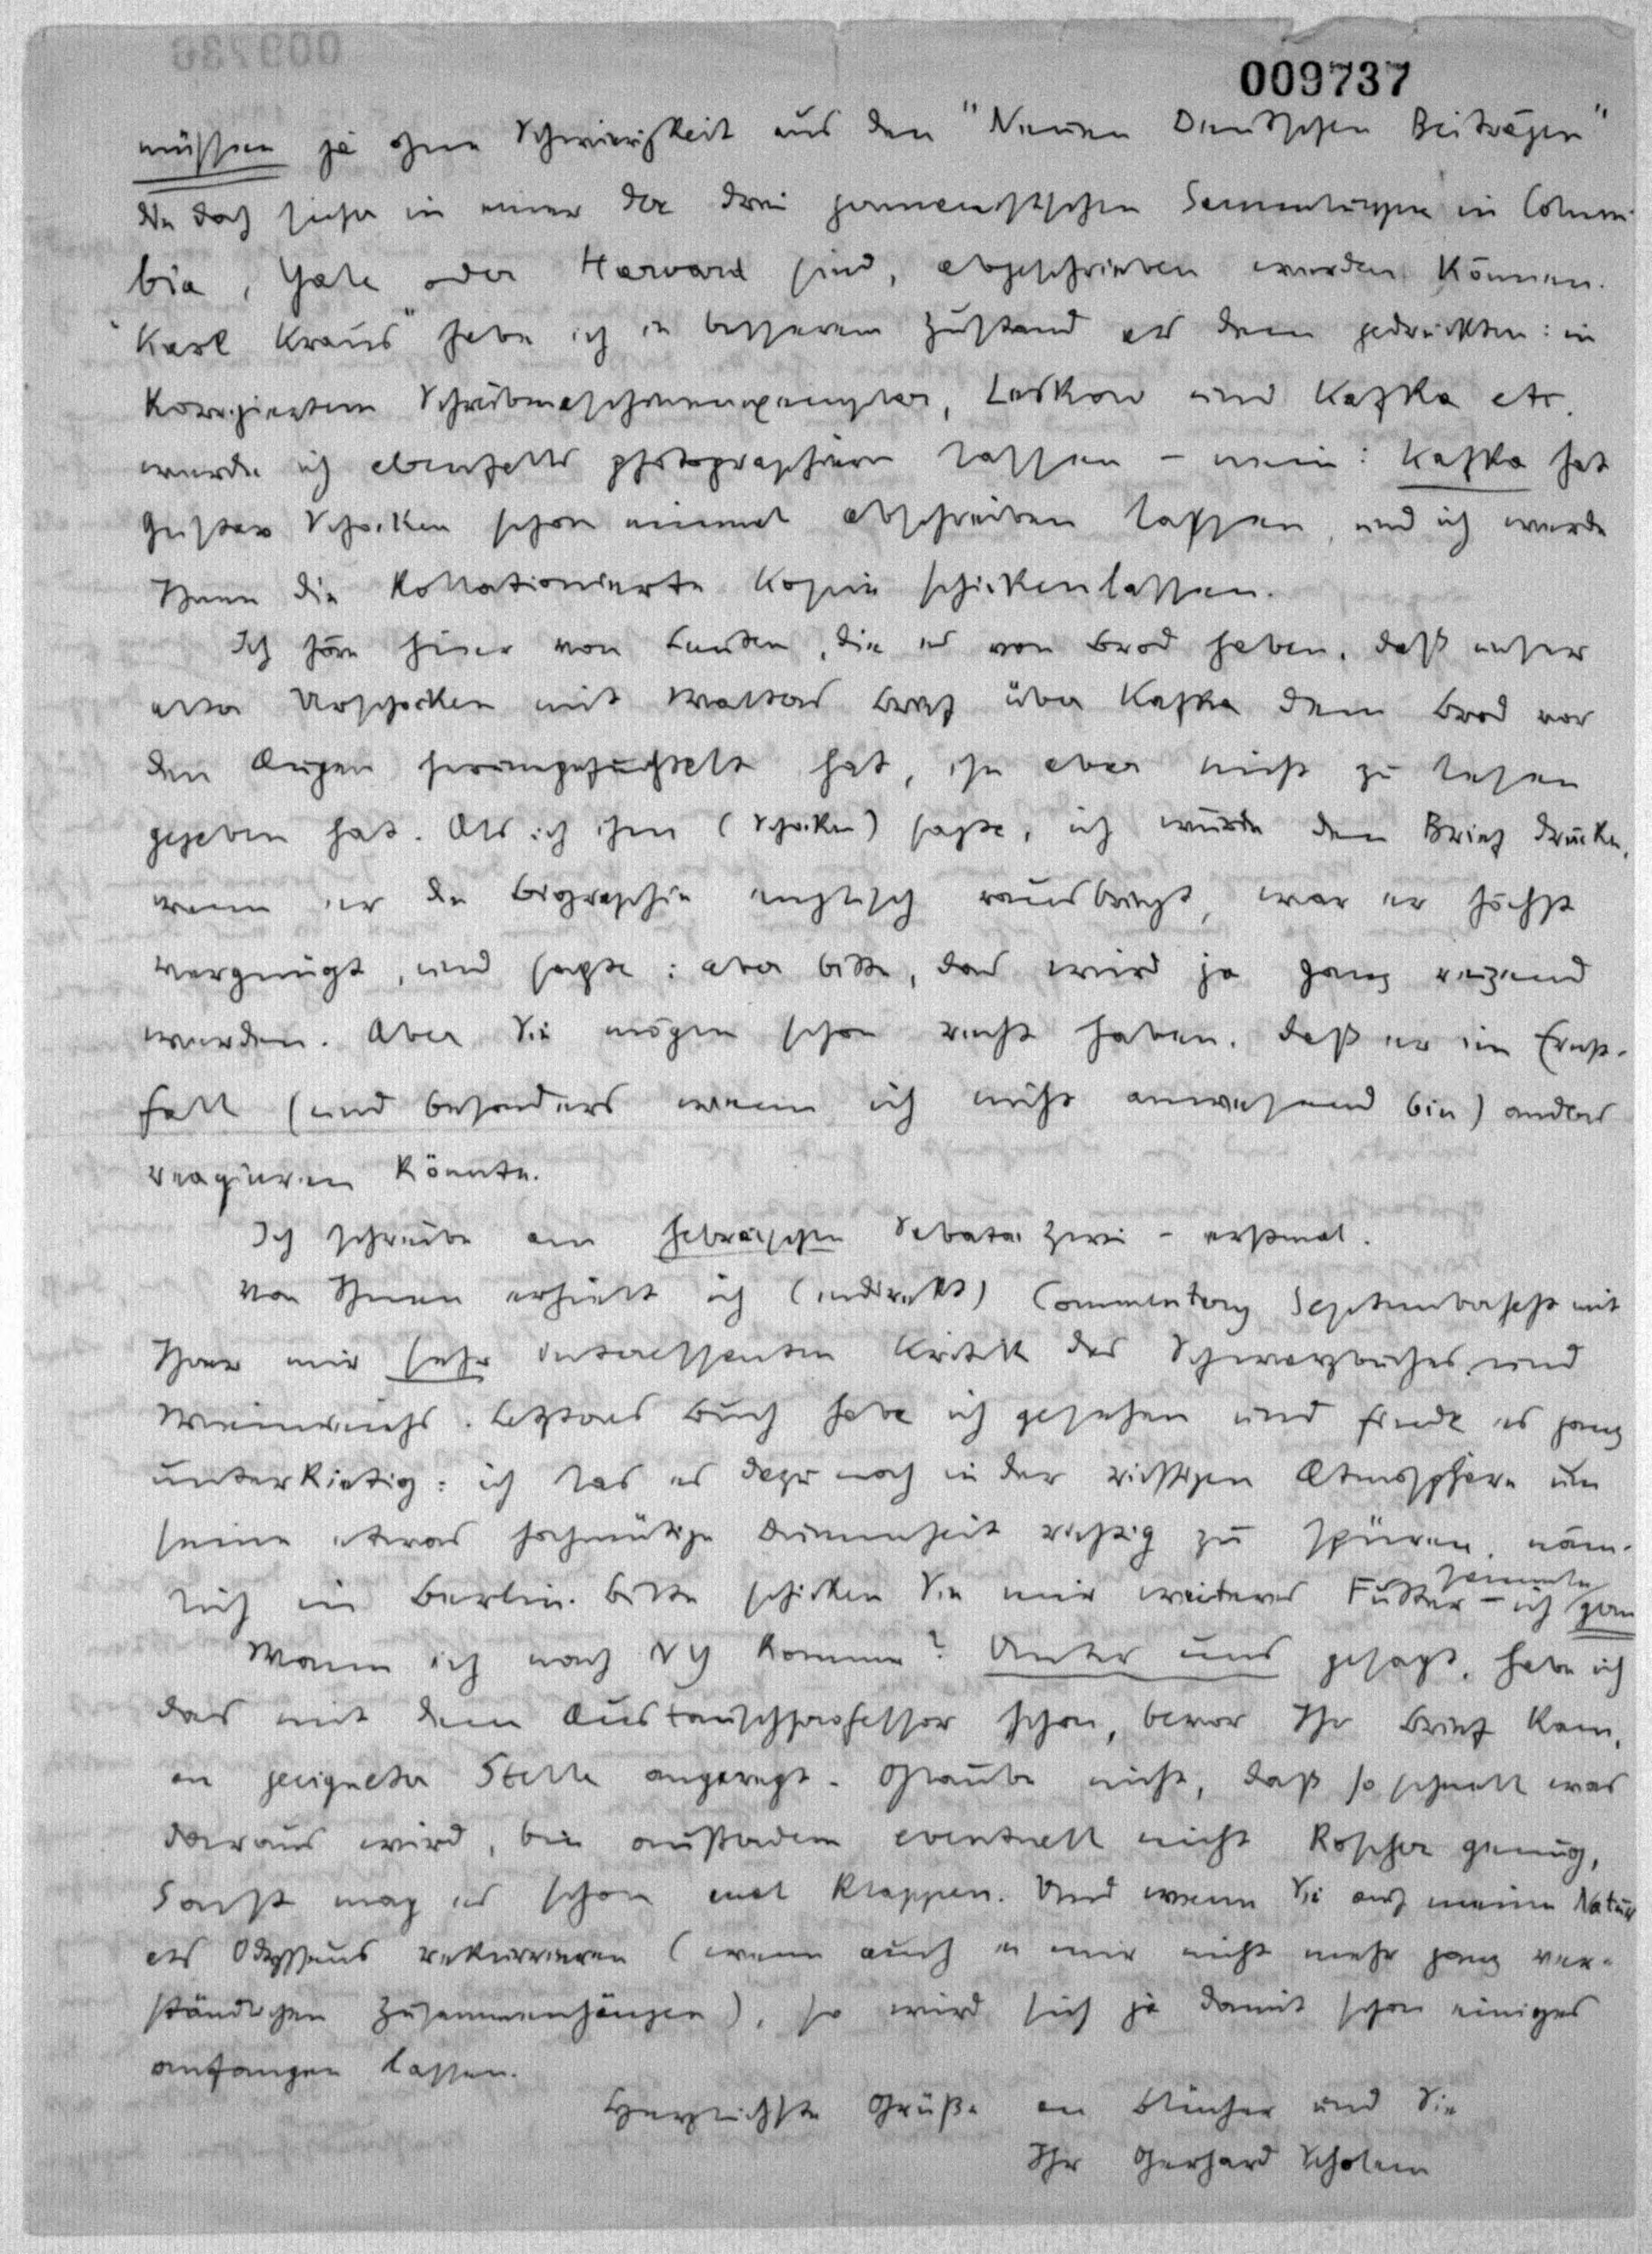 009737
müssen ja ohne Schwierigkeit aus den "Neuen Deutschen Beiträgen"
die doch sicher in einer der drei germanistischen Sammlungen in Colum-
bia, Yale oder Harvard sind, abgeschrieben werden können.
"Karl Kraus" habe ich in besserem Zustand als dem gedruckten: in
korrigiertem Schreibmaschinenexemplar, Leskow und Kafka etc.
werde ich ebenfalls photographieren lassen – nein: Kafka hat
Gustav Schocken schon einmal abschreiben lassen, und ich werde
Ihnen die kollationierte Kopie schicken lassen.
Ich höre hier von Leuten, die es von Brod haben, daß unser
alter Urschocken mit Walters Brief über Kafka dem Brod vor
den Augen herumgefuchtelt hat, ihn aber nicht zu lesen
gegeben hat. Als ich ihm (Schocken) sagte, ich würde den Brief drucken,
wenn er die Biographie englisch rausbringt, war er höchst
vergnügt, und sagte: aber bitte, das wird ja ganz reizend
werden. Aber Sie mögen schon recht haben, daß er im Ernst-
fall (und besonders wenn ich nicht anwesend bin) anders
reagieren könnte.
Ich schreibe am hebräischen Sabatai Zwi – erstmal.
Von Ihnen erhielt ich (indirekt) Commentary Septemberheft mit
Ihrer mir sehr interessanten Kritik des Schwarzbuches und
Weinreichs. Letzteres Buch habe ich gesehen und finde es ganz
unterkietig: ich las es dazu noch in der richtigen Atmosphäre um
seine etwas hochmütige Dummheit richtig zu spüren, näm-
lich in Berlin. Bitte schicken Sie mir weiteres Futter – ich sammle gern
Wann ich nach NY komme? Unter uns gesagt, habe ich
das mit dem Austauschprofessor schon, bevor Ihr Brief kam,
an geeigneter Stelle angeregt. Glaube nicht, daß so schnell was
daraus wird, bin außerdem eventuell nicht koscher genug,
sonst mag es schon mal klappen. Und wenn Sie auf meine Natur
als Odysseus rekurrieren (wenn auch in mir nicht mehr ganz ver-
ständlichen Zusammenhängen), so wird sich ja damit schon einiges
anfangen lassen.
Herzlichste Grüße an Blücher und Sie
Ihr Gerhard Scholem